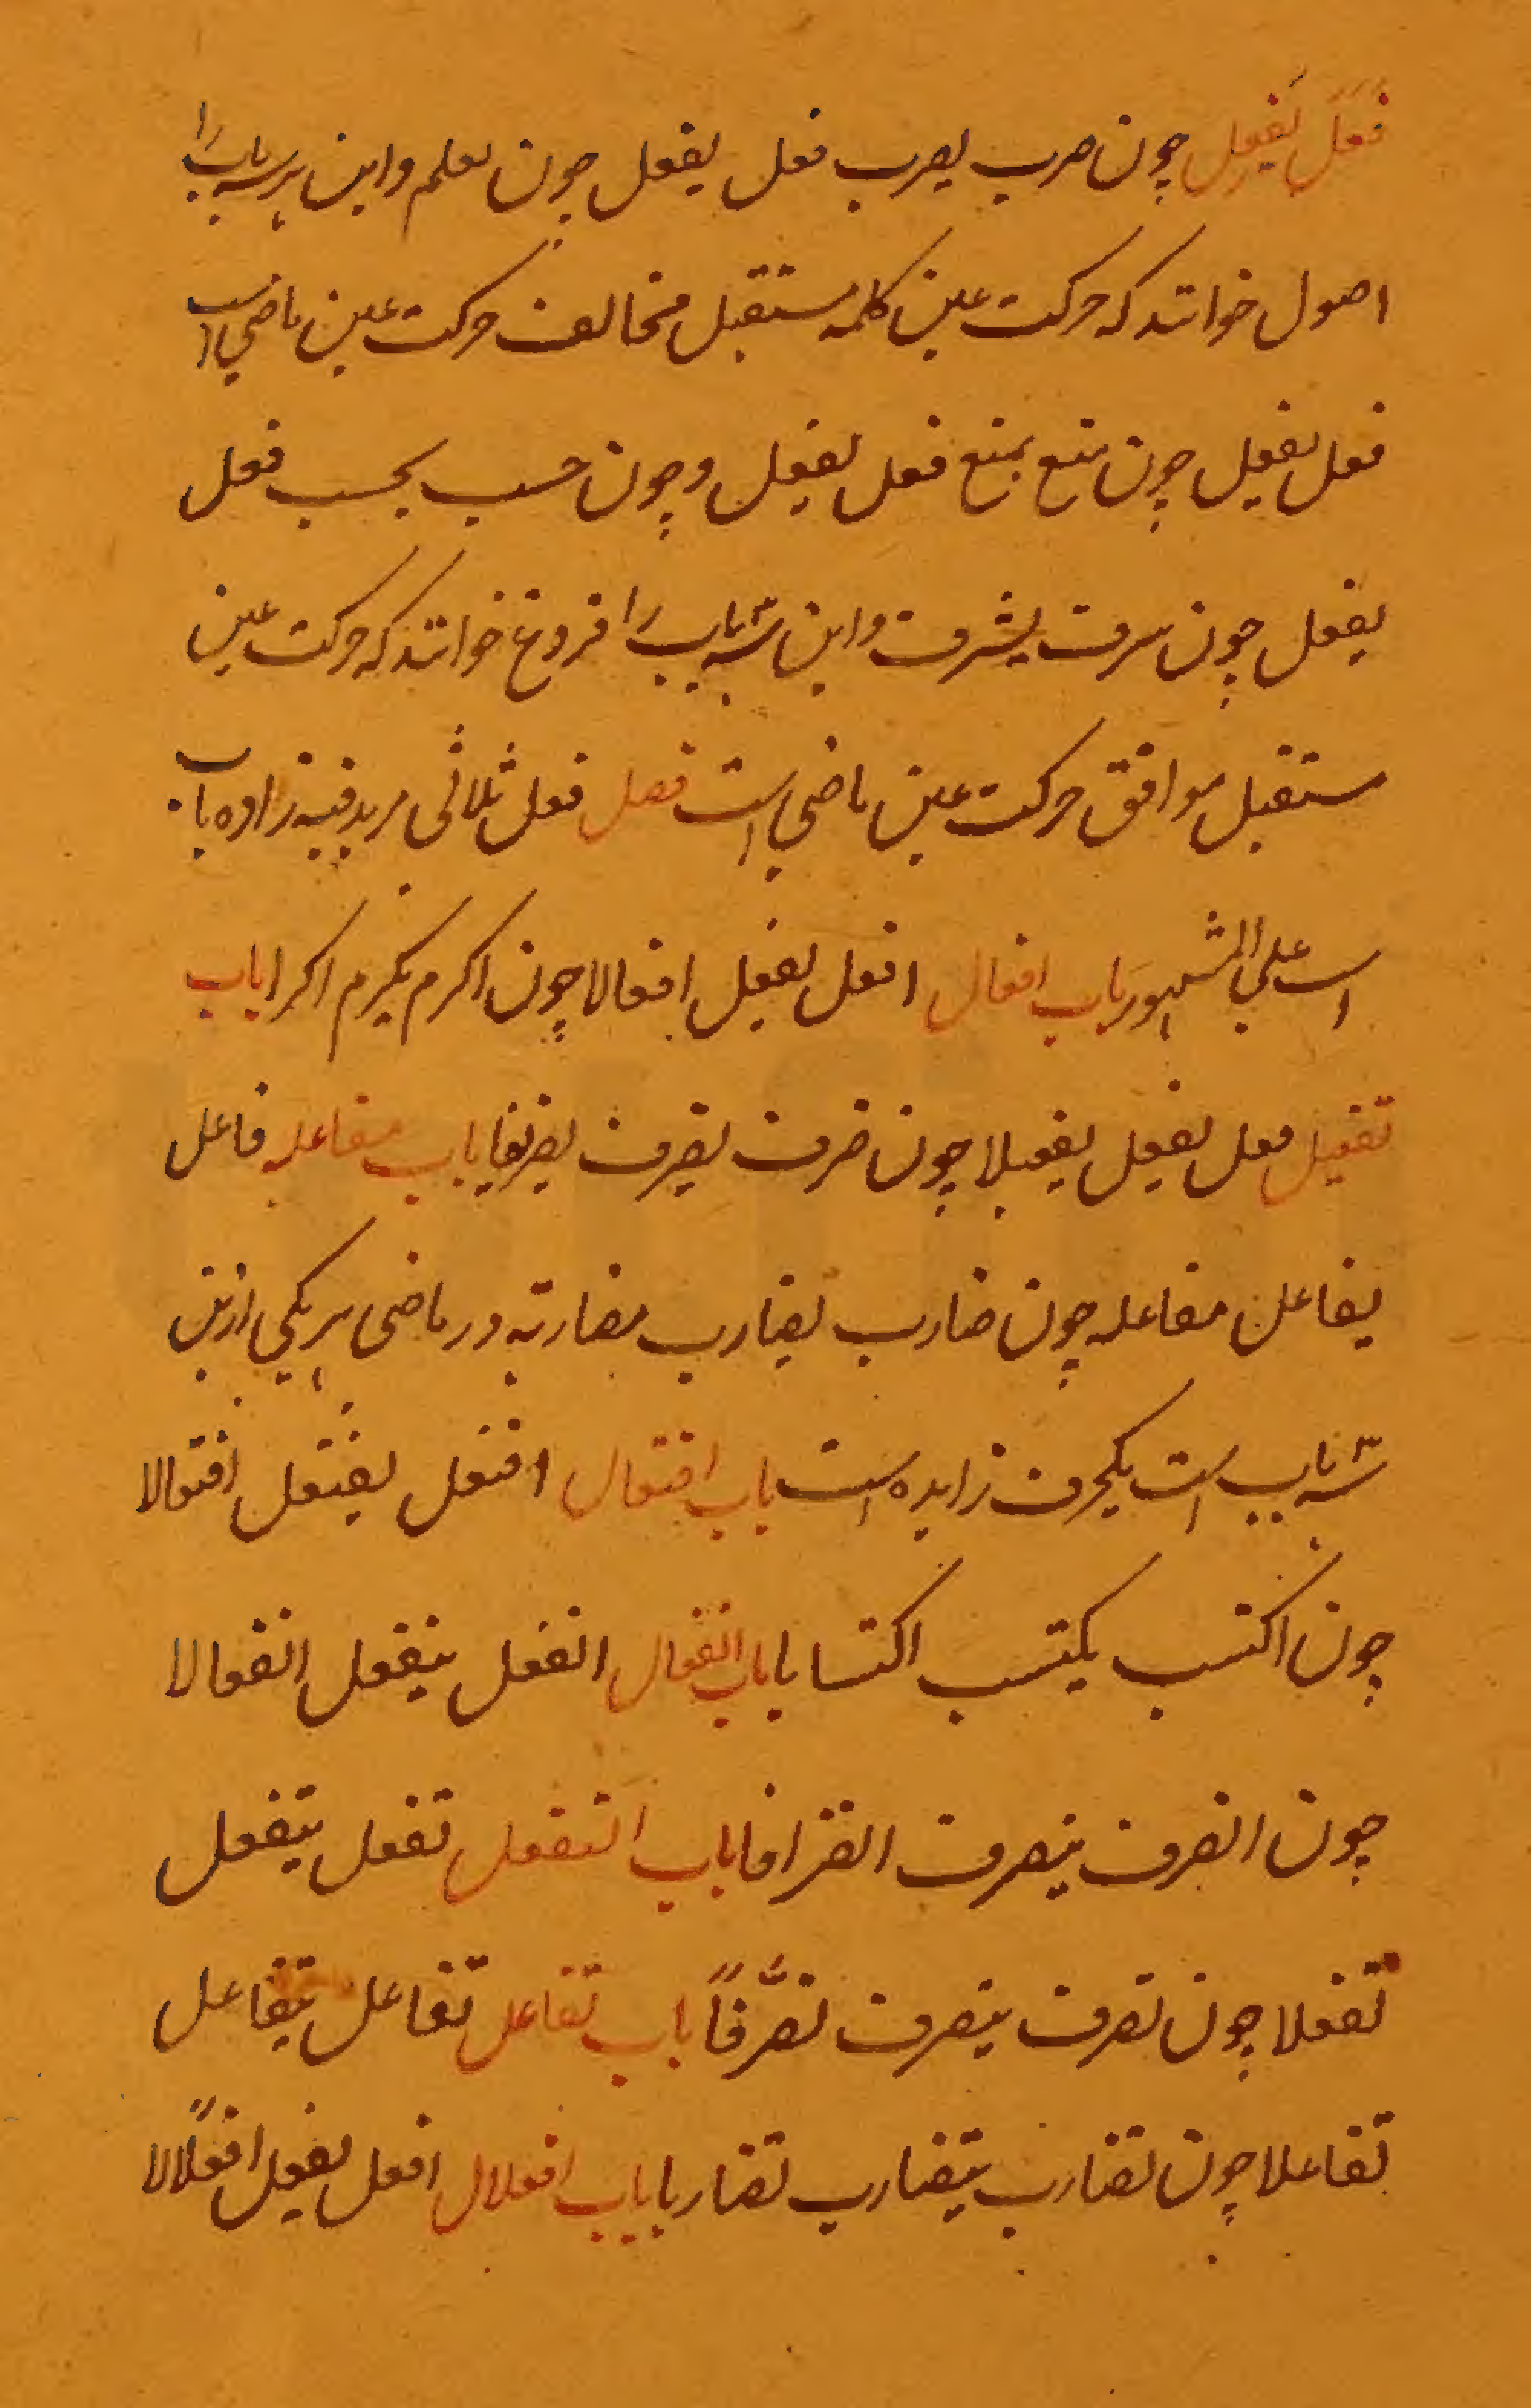 فَعَلَ یَفعِل چون ضرب یضرب فعل یفعل چون یعلم و این هر سه باب را
اصول خوانند که حرکت عین کلمه مستقبل مخالف حرکت عین ماضی است
فعل یفعل چون منع یمنع فعل یفعل و چون حسب یحسب فعل
یفعل چون شرف یشرف و این سه باب را فروع خوانند که حرکت عین
مستقبل موافق حرکت عین ماضی است فصل فعل ثلاثی مزید فیه را ده باب
است علی المشهور باب افعال افعل یفعل افعالا چون اکرم یکرم اکراما باب
تفعیل فعل یفعل تفعیلا چون صرف یصرف تصریفا باب مفاعله فاعل
یفاعل مفاعله چون ضارب یضارب مضاربة در ماضی هر یکی ازین
سه باب است یکحرف زایده است باب افتعال افتعل یفتعل افتعالا
چون اکتسب یکتسب اکتسابا باب انفعال انفعل ینفعل انفعالا
چون انصرف ینصرف انصرافا باب التفعل تفعل یتفعل
تفعلا چون تصرف یتصرف تصرُّفاً باب تفاعل تفاعل یتفاعل
تفاعلا چون تضارب یتضارب تضاربا باب افعلال افعل یفعل افعلالا